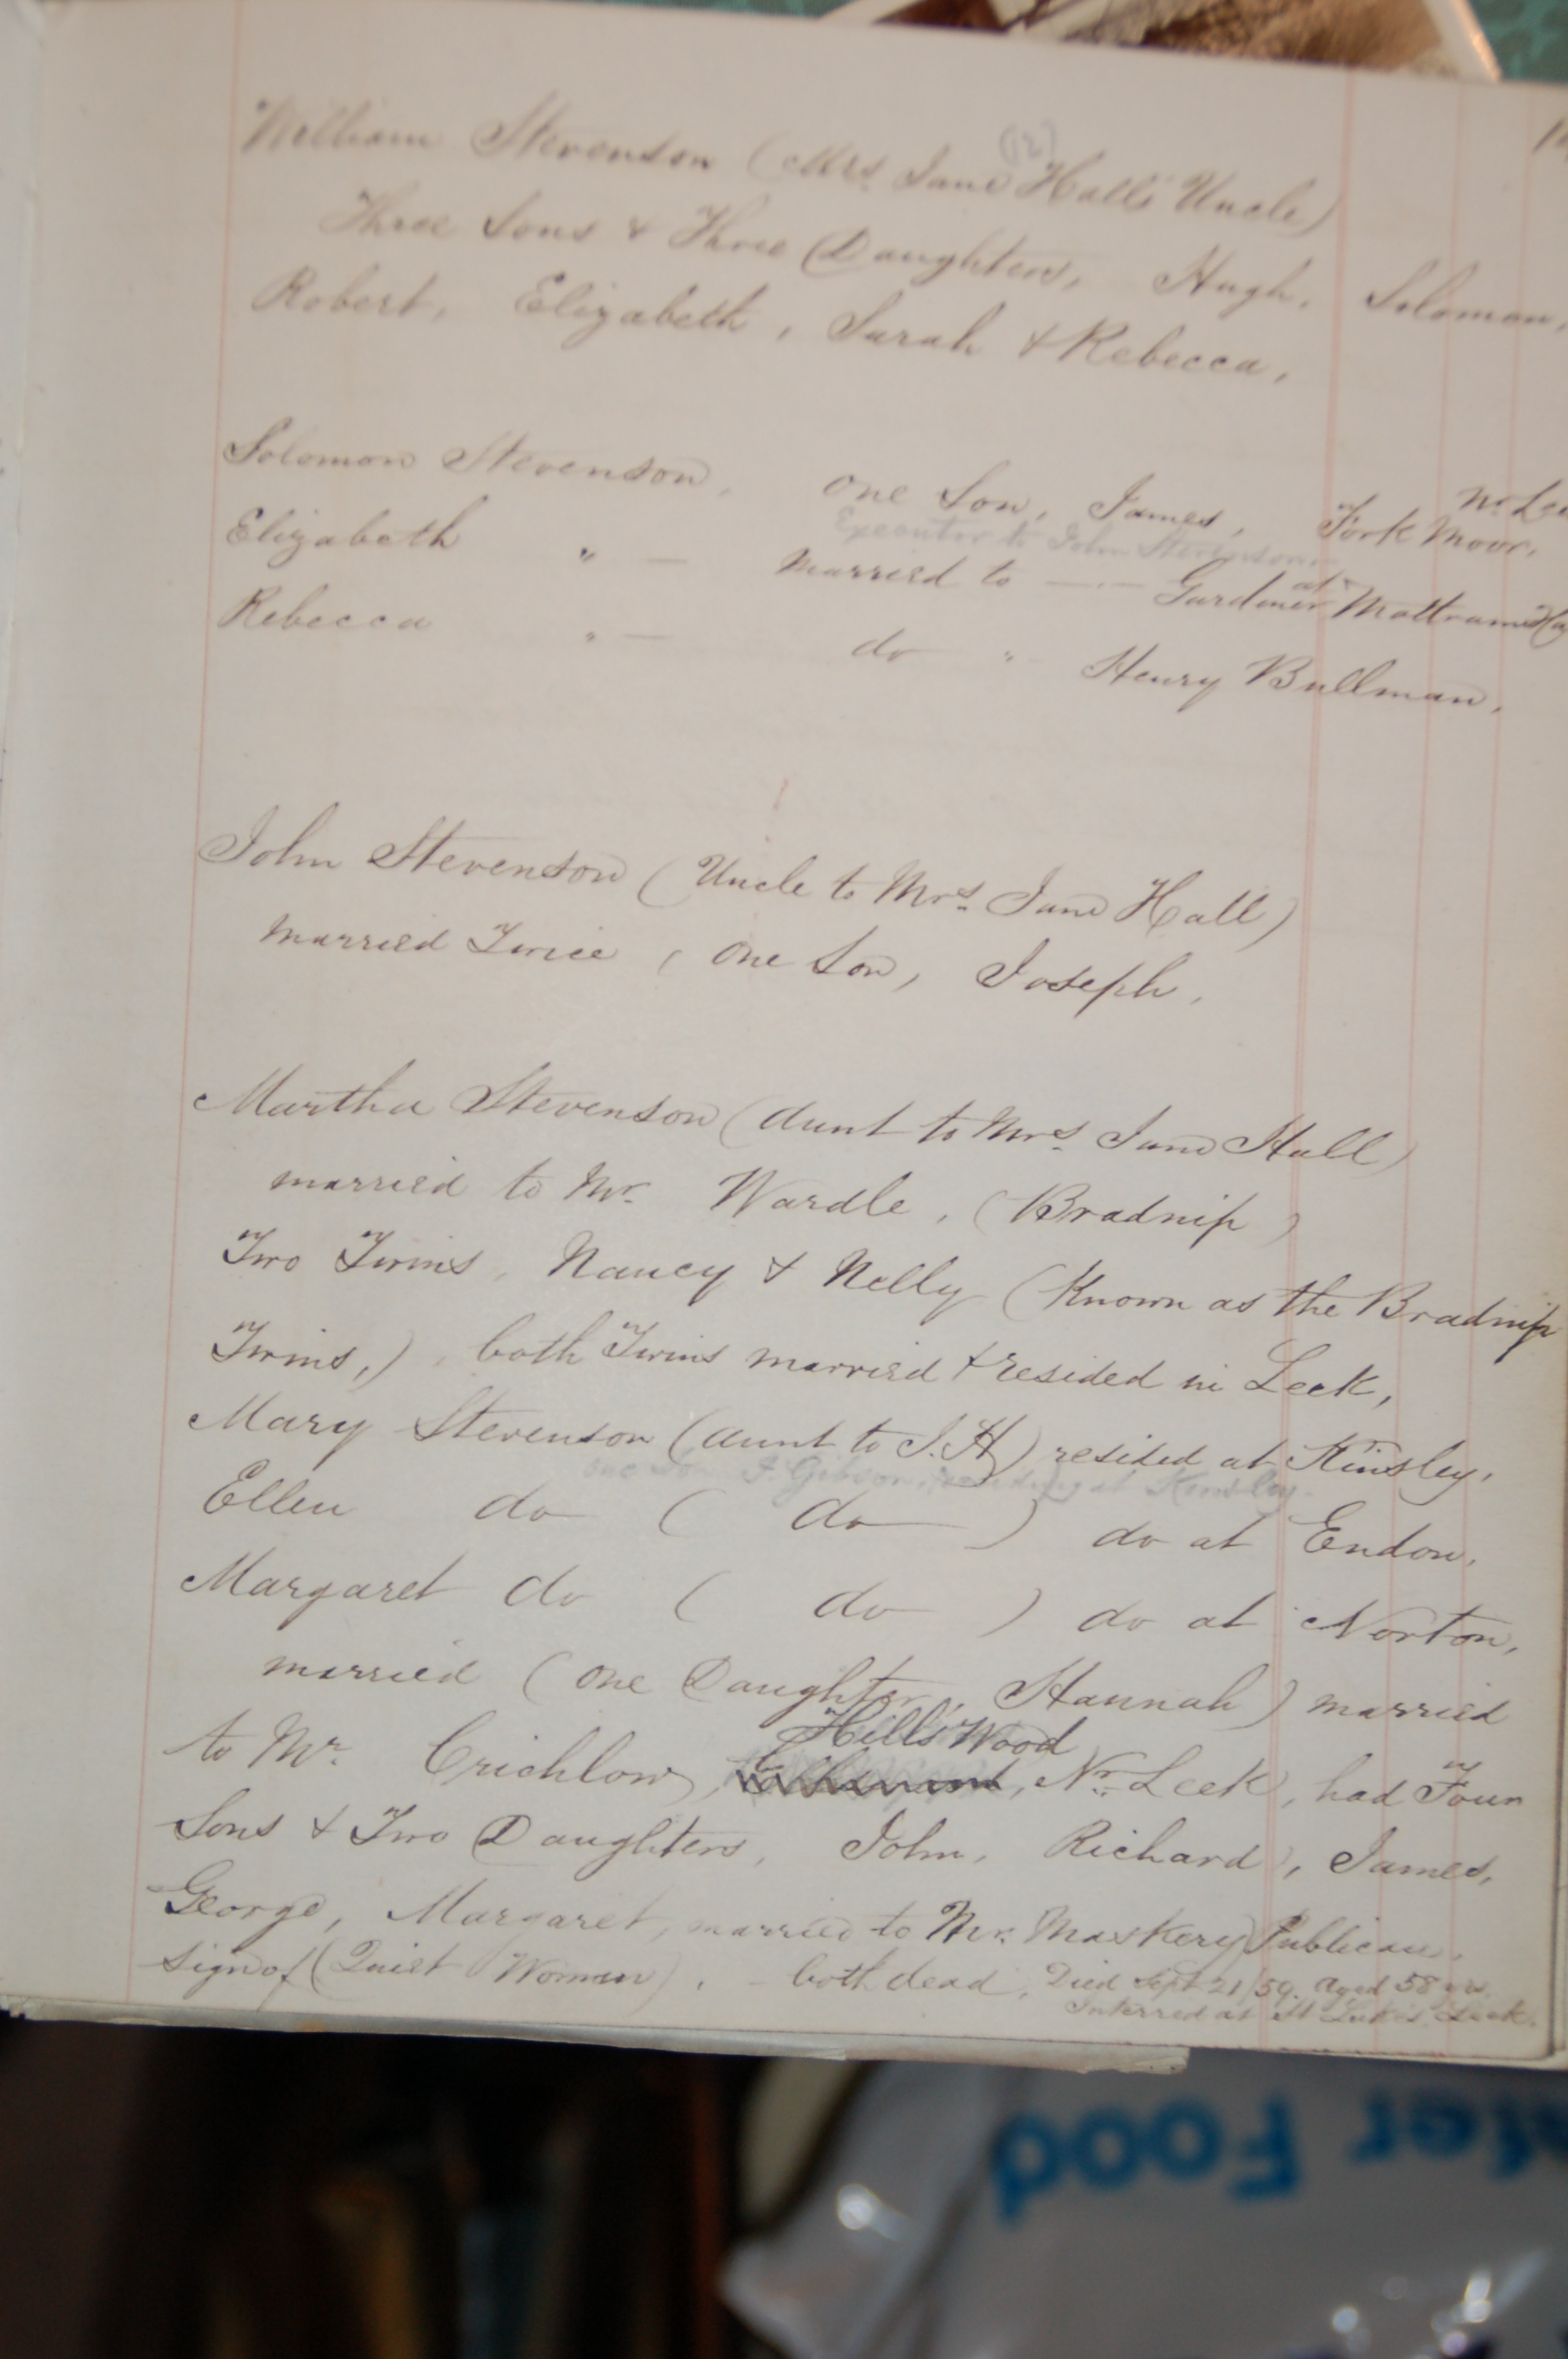 (12)
William Stevenson (Mrs. Jane Hall's Uncle)
Three Sons & Three Daughters, Hugh, Solomon,
Robert, Elizabeth, Sarah & Rebecca,
Nr. Lee
Solomon Stevenson, one Son, James, Fork Moor,
Executor to John Stevenson
at
Elizabeth " — married to — Gardiner Mattram
Rebecca " — do " Henry Bullman,
John Stevenson (Uncle to Mrs. Jane Hall)
married Twice, one Son, Joseph,
Martha Stevenson (Aunt to Mrs. Jane Hall)
married to Mr. Wardle, (Bradnip)
Two Twins, Nancy & Nelly (Known as the Bradnip
Twins,) both Twins married & resided in Leek,
Mary Stevenson (Aunt to J. H) resided at Kinsley,
one son J. Gibson, residing at Kinsley
Ellen do ( do ) do at Endon,
Margaret do ( do ) do at Norton,
married (one Daughter, Hannah) married
Hills Wood
to Mr. Crichlow, Nr. Leek, had Four
Sons & Two Daughters, John, Richard, James,
George, Margaret, married to Mr. Maskery Publican,
sign of (Quiet Woman). both dead, Died Sept 21/59. Aged 58 yrs.
Interred at St Luke's, Leek.
Food